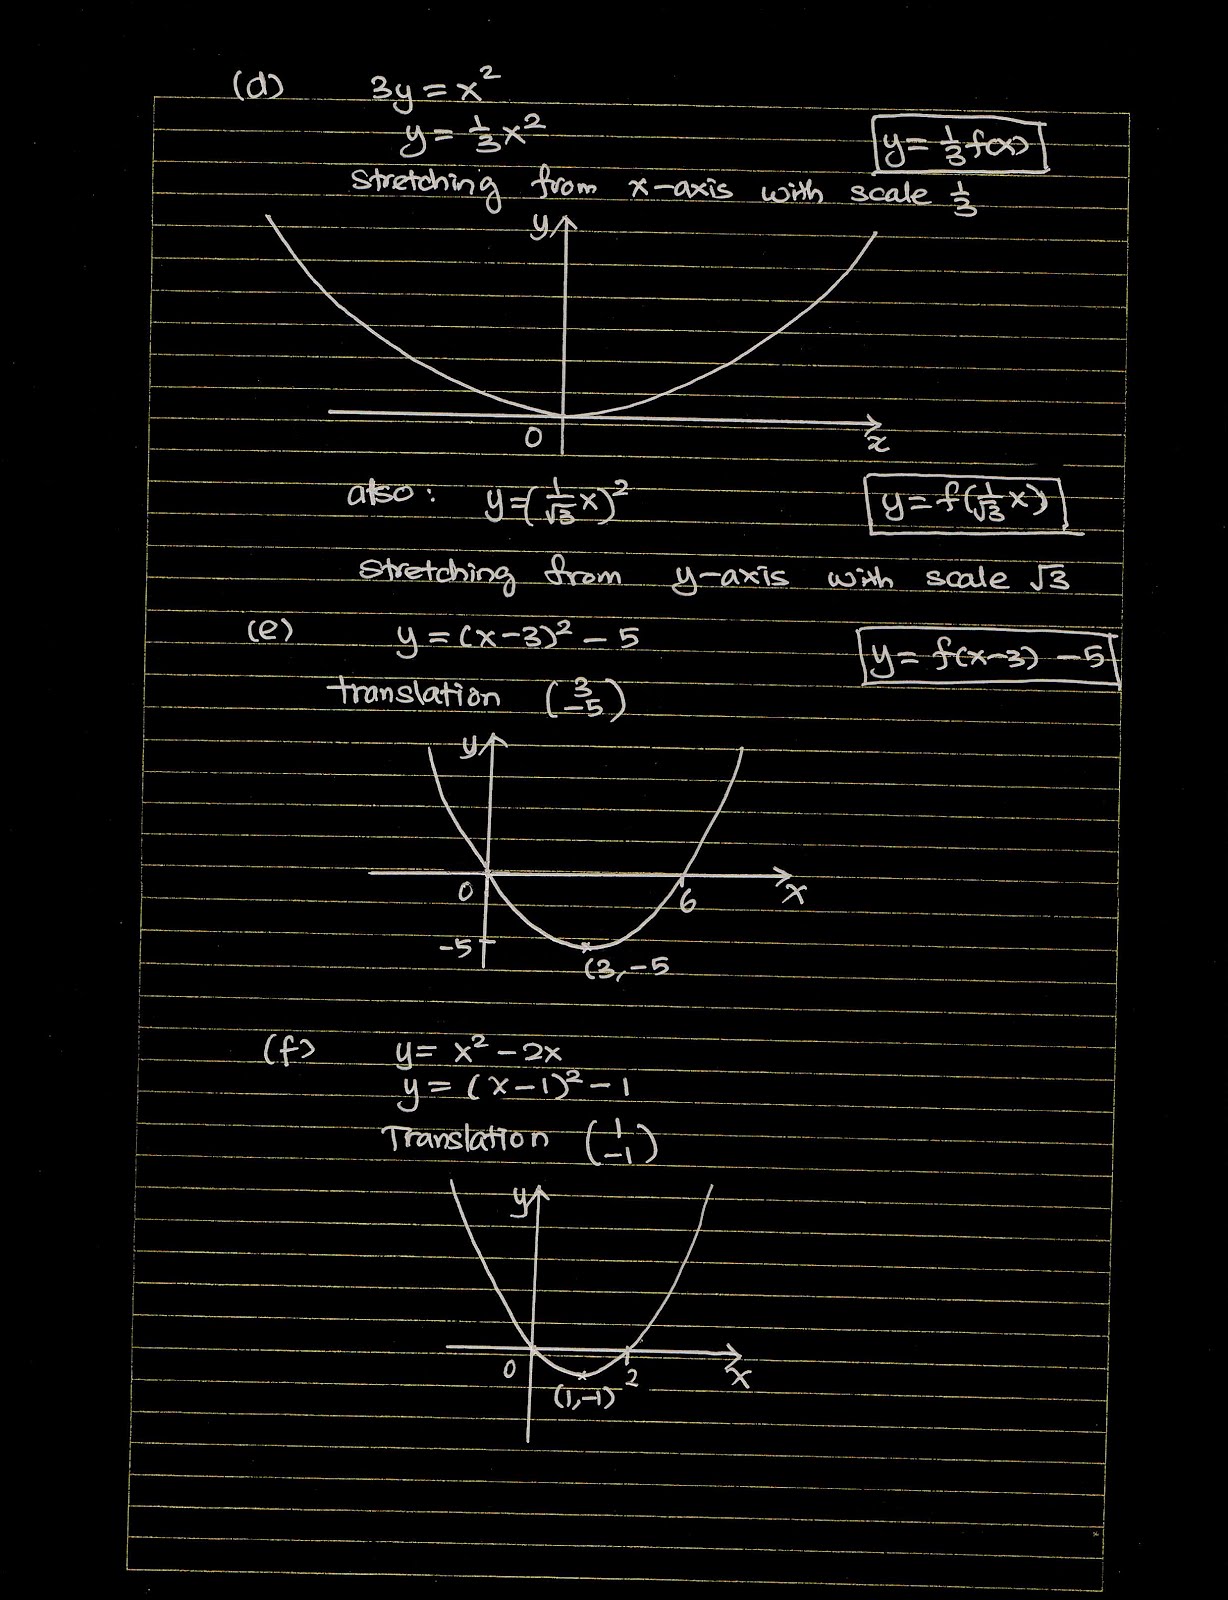 (d) 3y = x²
y = 1/3 x² y = 1/3 f(x)
stretching from x-axis with scale 1/3
y
0
x
also: y = (1/√3 x)² y = f(1/√3 x)
stretching from y-axis with scale √3
(e) y = (x-3)² - 5 y = f(x-3) - 5
translation (3 -5)
y
0 6 x
-5
(3,-5
(f) y = x² - 2x
y = (x-1)² - 1
Translation (1 -1)
y
0 2 x
(1,-1)